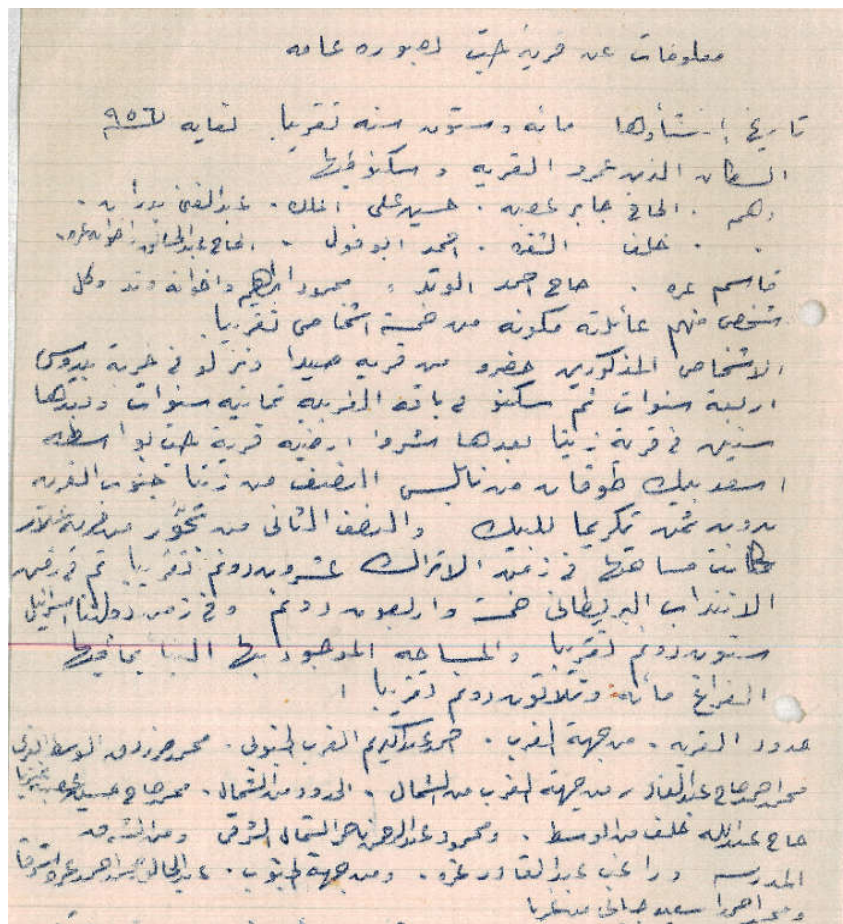 معلومات عن قرية جت بصوره عامه
تاريخ إنشاؤها مائه وستون سنه تقريبا لغايه ٩٥٦
السكان الذين عمرو القريه وسكنو فيها
وهم . الحاج جابر غصه . حسين علي . عبد الغني بدران .
خلف . احمد ابو فول . الحاج عبد الخالق واخوانه غره .
قاسم غره . حاج احمد الوتد . محمود ابراهيم واخوانه وتد وكل
شخص منهم عائلته مكونه من خمسة اشخاص تقريبا .
الاشخاص المذكورين حضرو من قريه صيدا ونزلو في خربة بيدوس
اربعة سنوات ثم سكنو في باقه الغربيه ثمانيه سنوات وبعدها
سنتين في قرية زيتا بعدها شروا ارضيه قرية جت بواسطه
اسعد بيك طوقان من نابلس النصف من زيتا جنوب القريه
بدون ثمن تكريما للبيك والنصف الثاني من من قرية
كانت مساحتها في زمن الاتراك عشرون دونم تقريبا ثم في زمن
الانتداب البريطاني خمسة واربعون دونم وفي زمن دولتنا اسرائيل
ستون دونم تقريبا والمساحه الموجود بها البنا بما فيها
الفراغ مائه وثلاثون دونم تقريبا
حدود القريه . من جهة الغرب . عبد الكريم الغرب الجنوبي . محمد مرزوق الوسط الغربي
محمد احمد حاج عبد القادر من جهة الغرب من الشمال . الحدود من الشمال . محمد حاج حسين غربا
حاج عبد الله خلف من الوسط . ومحمود عبد الرحمن ناصر الشمال الشرقي ومن الشرق
المدرسه وراغب عبد القادر غره . ومن جهة الجنوب . عبد الخالق احمد غره شرقا
احمد سعيد من غربا